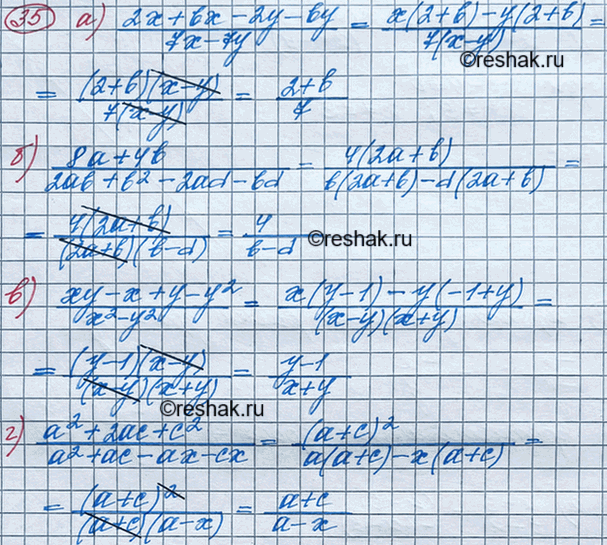 35 а) (2x + bx - 2y - by)/(7x - 7y) = (x(2+b) - y(2+b))/(7(x-y)) =
©reshak.ru
= ((2+b)(x-y))/(7(x-y)) = (2+b)/7
б) (8a + 4b)/(2ab + b² - 2ad - bd) = (4(2a+b))/(b(2a+b) - d(2a+b)) =
= (4(2a+b))/((2a+b)(b-d)) = 4/(b-d)
©reshak.ru
в) (xy - x + y - y²)/(x² - y²) = (x(y-1) - y(-1+y))/((x-y)(x+y)) =
= ((y-1)(x-y))/((x-y)(x+y)) = (y-1)/(x+y)
©reshak.ru
г) (a² + 2ac + c²)/(a² + ac - ax - cx) = (a+c)²/(a(a+c) - x(a+c)) =
= (a+c)²/((a+c)(a-x)) = (a+c)/(a-x)